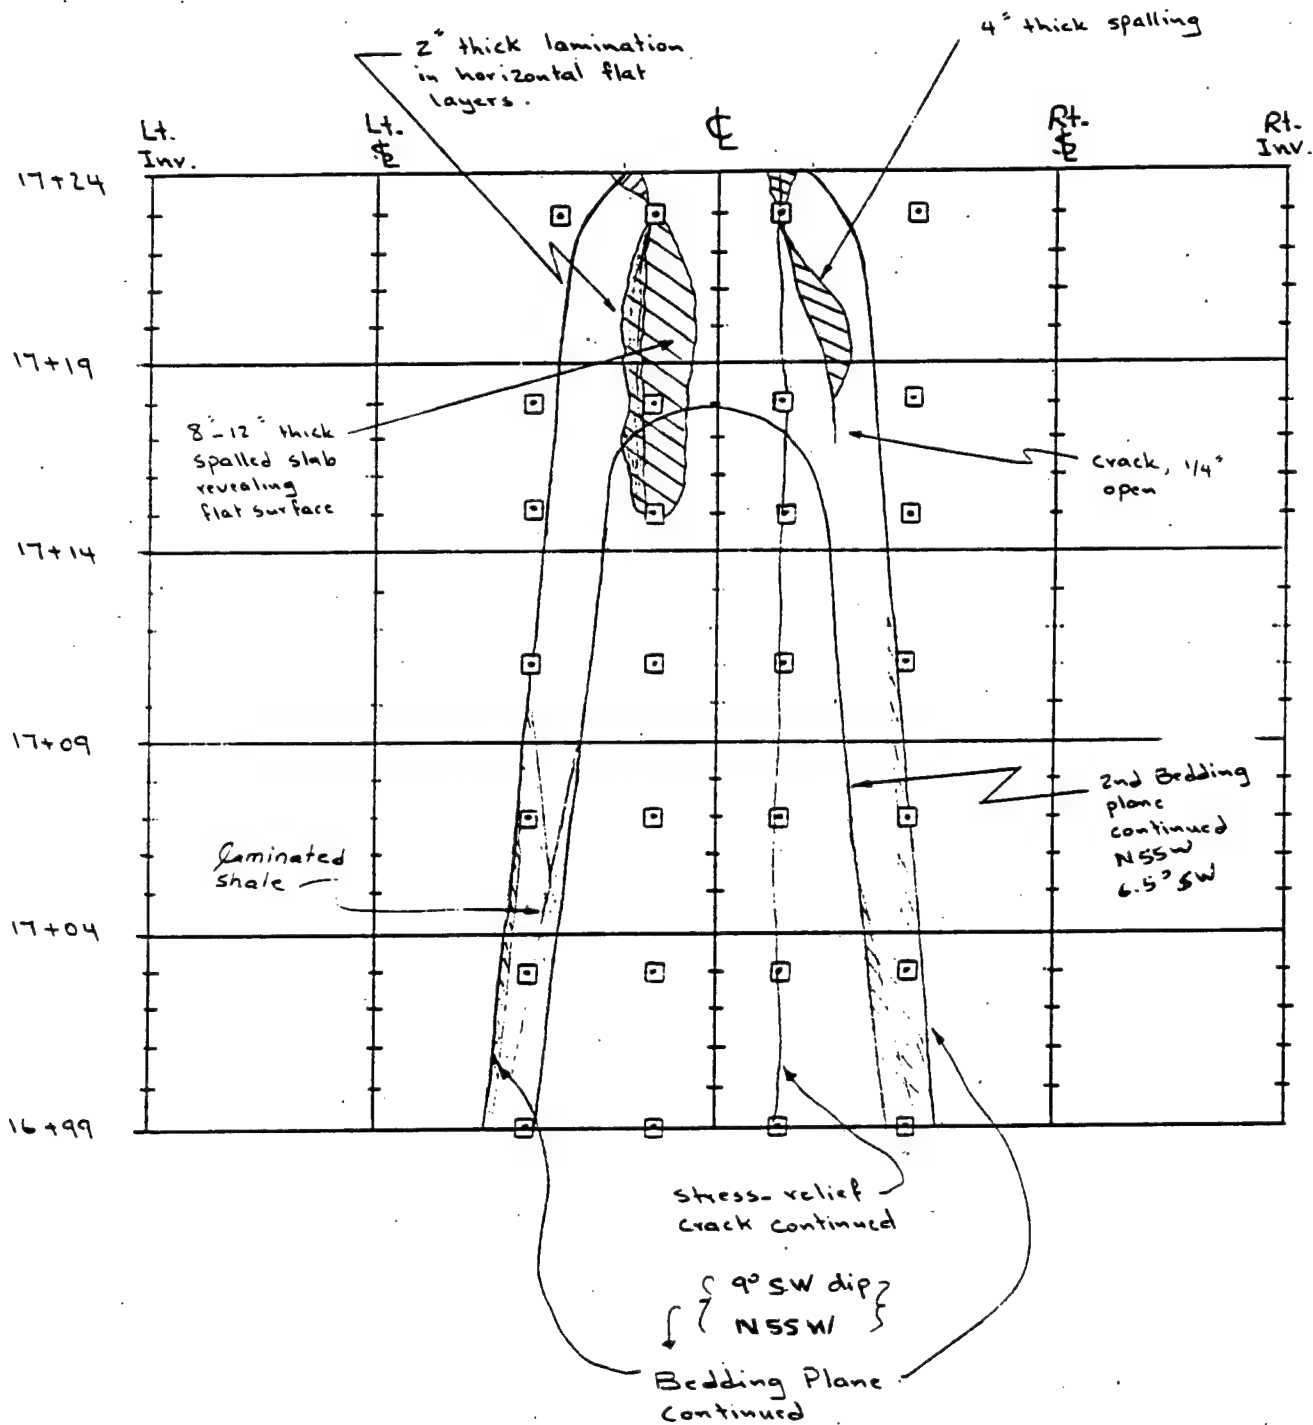 2" thick lamination
in horizontal flat
layers.
4" thick spalling
Lt.
Inv.
Lt.
℄
Rt.
Rt.
Inv.
17+24
17+19
8"-12" thick
spalled slab
revealing
flat surface
crack, 1/4"
open
17+14
17+09
2nd Bedding
plane
continued
N55W
6.5° SW
laminated
shale
17+04
16+99
stress-relief
crack continued
9° SW dip
N55W
Bedding Plane
continued